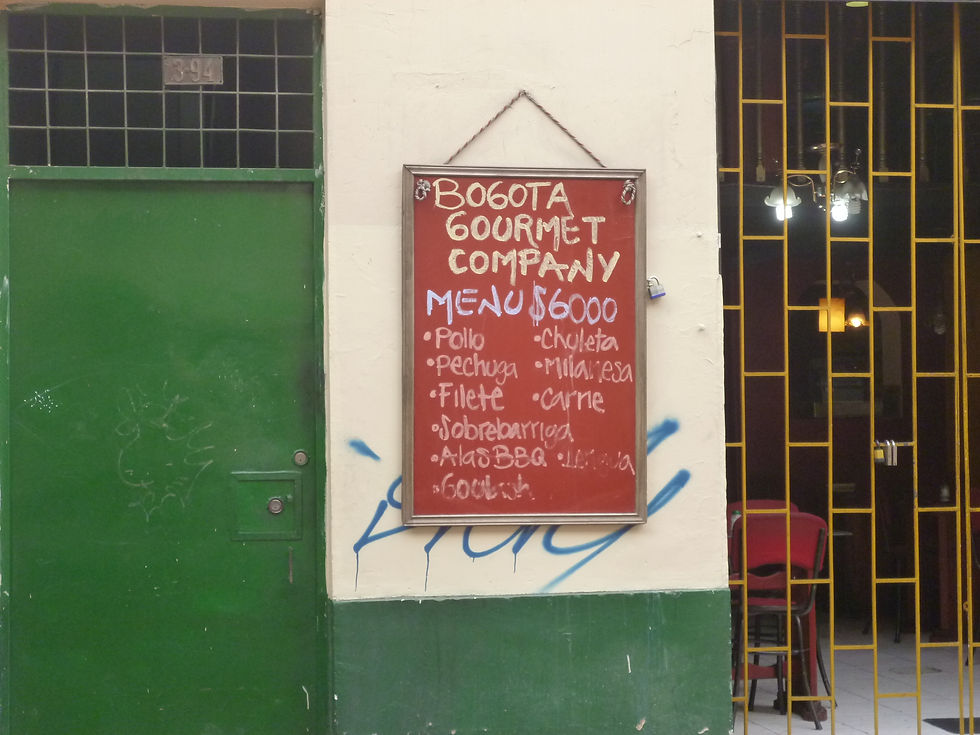 3-94
BOGOTA
GOURMET
COMPANY
MENU $6000
•Pollo •Chuleta
•Pechuga •Milanesa
•Filete •Carne
•Sobrebarriga
•Alas BBQ